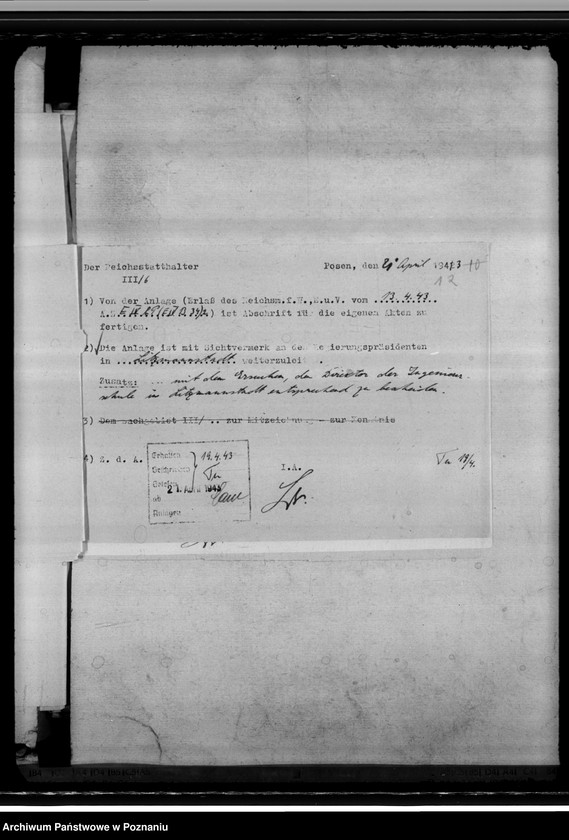 Der Reichsstatthalter Posen, den 21. April 1943
III/6
12
1) Von der Anlage (Erlaß des Reichsm.f.W.,E.u.V. vom 13.4.43.
) ist Abschrift für die eigenen Akten zu
fertigen.
2) Die Anlage ist mit Sichtvermerk an den Regierungspräsidenten
in Litzmannstadt weiterzuleiten.
Zusatz: mit dem Ersuchen, den Direktor der Ingenieur-
schule in Litzmannstadt entsprechend zu bescheiden.
3) Dem Sachgebiet III/ .. zur Mitzeichnung - zur Kenntnis
4) Z. d. A.
Erhalten 19.4.43
Gelesen 21. April 1943
ab
I.A.
19/4.
Archiwum Państwowe w Poznaniu